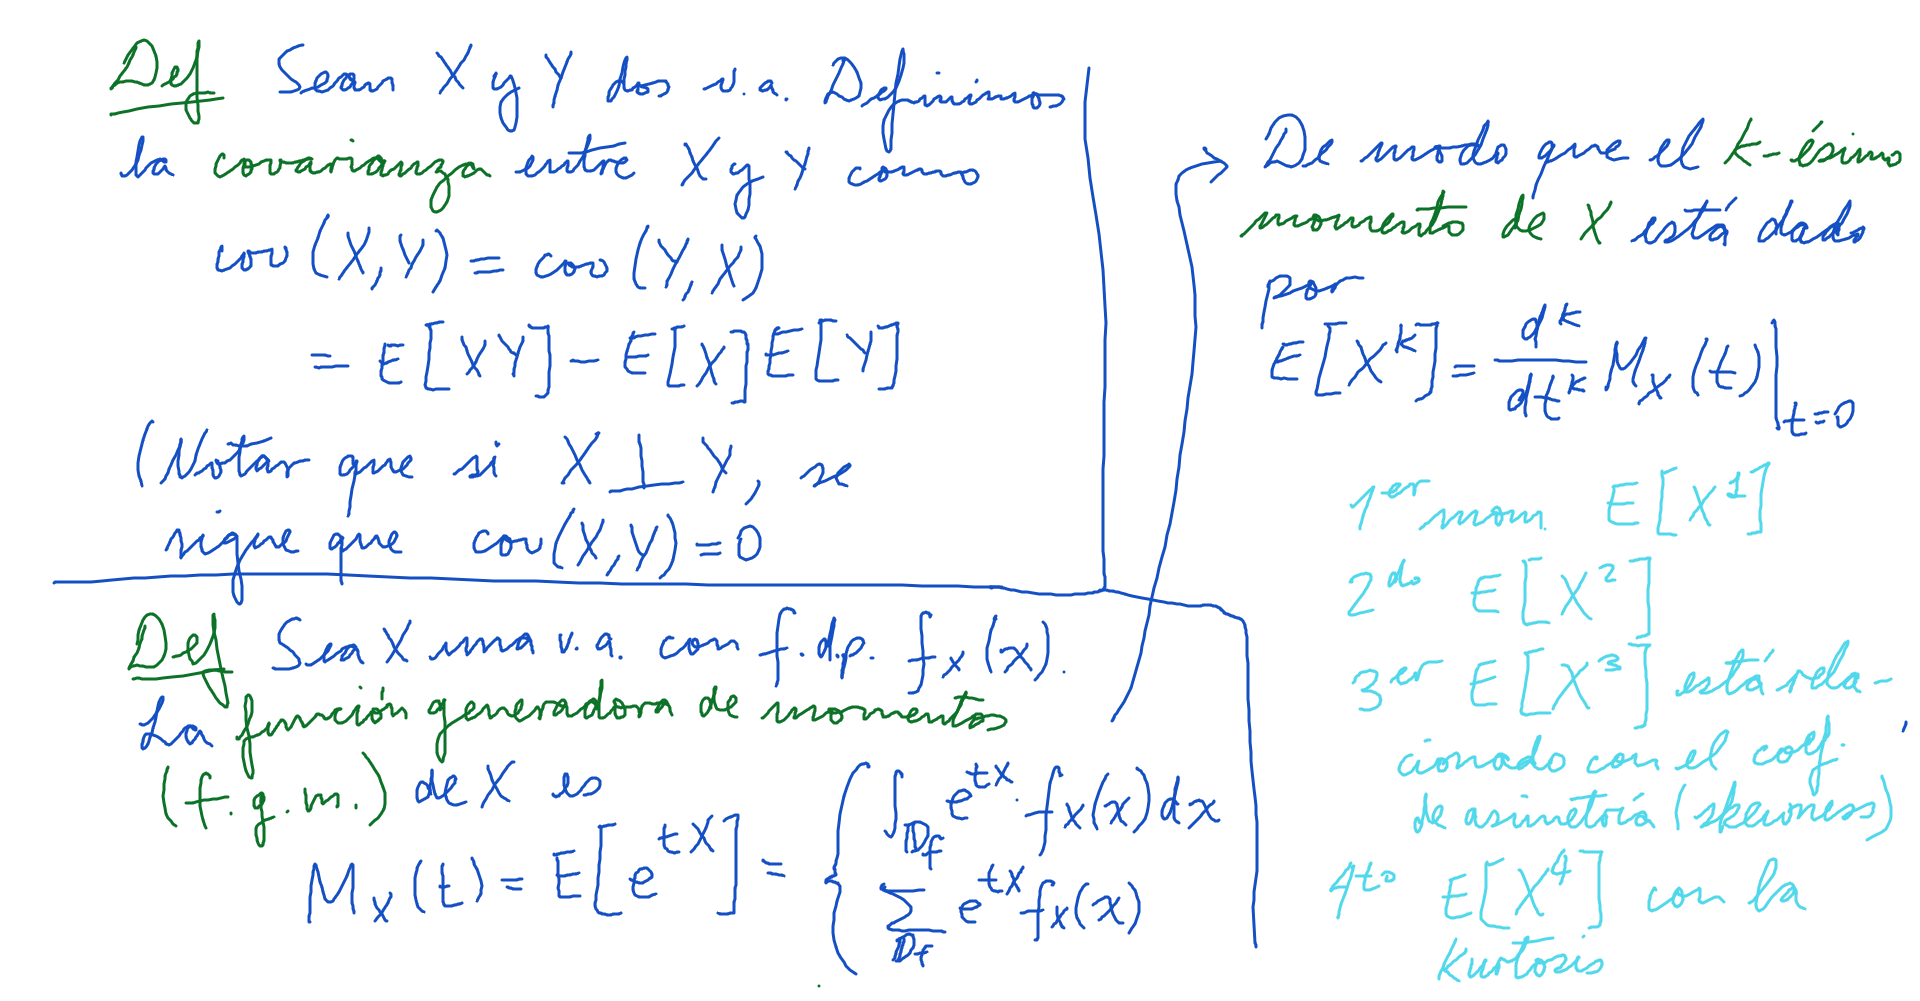 Def Sean X y Y dos v.a. Definimos
la covarianza entre X y Y como
cov (X,Y) = cov (Y,X)
= E[XY] - E[X]E[Y]
(Notar que si X ⊥ Y, se
sigue que cov(X,Y)=0
Def Sea X una v.a. con f.d.p. f_X(x).
La función generadora de momentos
(f.g.m.) de X es
M_X(t) = E[e^{tX}] = { ∫_{D_f} e^{tx}·f_X(x)dx
∑_{D_f} e^{tx} f_X(x)
De modo que el k-ésimo
momento de X está dado
por
E[X^k] = d^k/dt^k M_X(t)|_{t=0}
1er mom. E[X^1]
2do E[X^2]
3er E[X^3] está rela-
cionado con el coef.
de asimetría (skewness)
4to E[X^4] con la
kurtosis